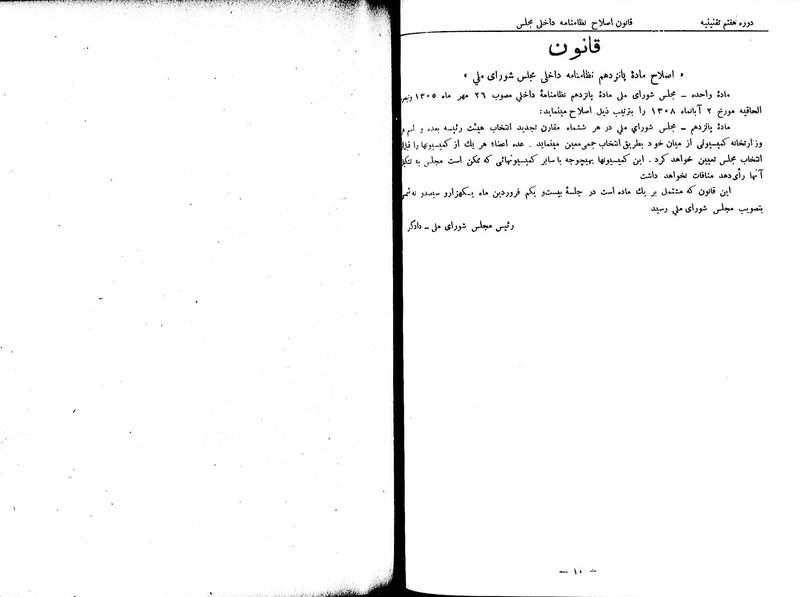 دوره هفتم تقنینیه
قانون اصلاح نظامنامه داخلی مجلس
قانون
« اصلاح مادهٔ پانزدهم نظامنامه داخلی مجلس شورای ملی »
مادهٔ واحده ــ مجلس شورای ملی مادهٔ پانزدهم نظامنامهٔ داخلی مصوب ۲۶ مهر ماه ۱۳۰۵
الحاقیه مورخ ۲ آبانماه ۱۳۰۸ را بترتیب ذیل اصلاح مینماید:
مادهٔ پانزدهم ــ مجلس شورای ملی در هر ششماه مقارن تجدید انتخاب هیئت رئیسه بعده و اسم
وزارتخانه کمیسیونی از میان خود بطریق انتخاب جمعی معین مینماید . عده اعضاء هر یك از کمیسیونها را
انتخاب مجلس تعیین خواهد کرد . این کمیسیونها بهیچوجه با سایر کمیسیونهائی که ممکن است مجلس به
آنها رأی‌دهد منافات نخواهد داشت
این قانون که مشتمل بر یك ماده است در جلسهٔ بیست‌و یکم فروردین ماه یکهزارو سیصدو نه
بتصویب مجلس شورای ملی رسید
رئیس مجلس شورای ملی ــ دادگر
ــ ۱۰ ــ